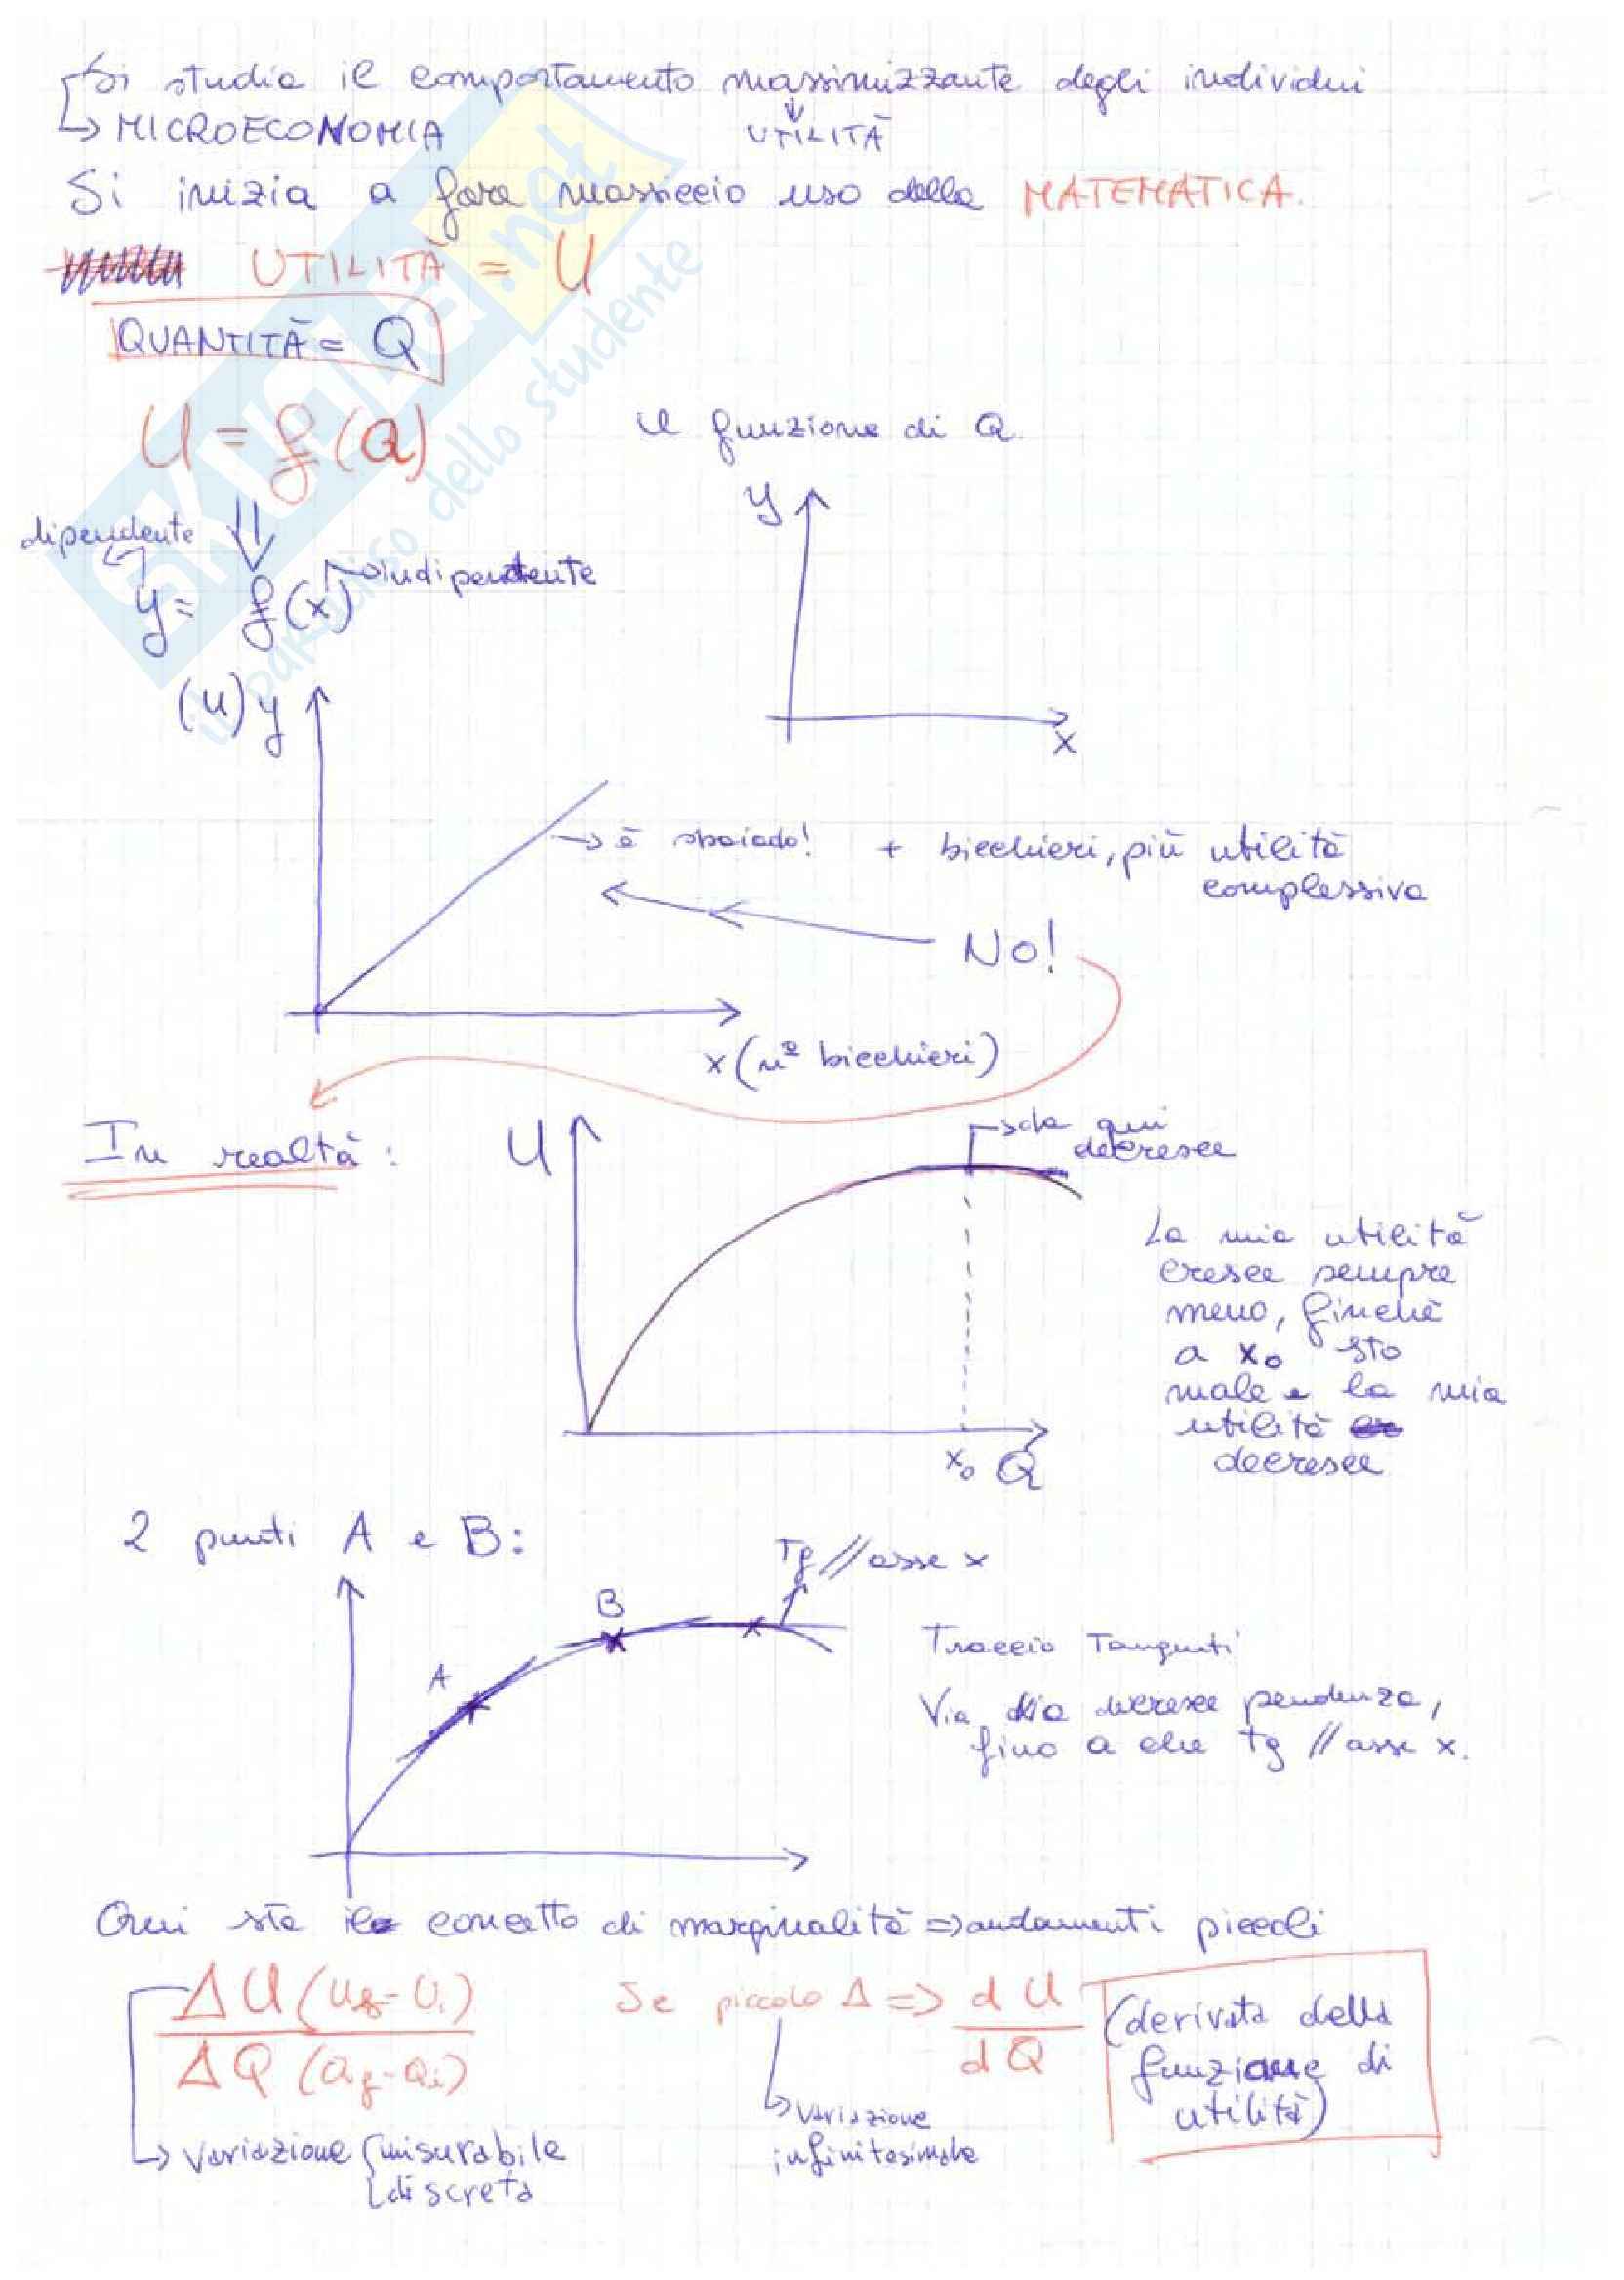 Si studia il comportamento massimizzante degli individui
↳ MICROECONOMIA
↓
UTILITÀ
Si inizia a fare massiccio uso della MATEMATICA.
UTILITÀ = U
QUANTITÀ = Q
U = f(Q)
U funzione di Q.
dipendente
y = f(x)
indipendente
y
x
(U) y
→ è sbaiado! + bicchieri, più utilità
complessiva
No!
x (nº bicchieri)
In realtà:
U
da qui
decresce
La mia utilità
cresce sempre
meno, finchè
a x₀ sto
male e la mia
utilità
decresce
x₀ Q
2 punti A e B:
Tg // asse x
B
A
Traccio Tangenti
Via via decresce pendenza,
fino a che tg // asse x.
Qui sta il concetto di marginalità ⇒ andamenti piccoli
ΔU (Uf-Ui)
ΔQ (Qf-Qi)
Se piccolo Δ ⇒ dU
dQ
(derivata della
funzione di
utilità)
↳ variazione
infinitesimale
↳ variazione { misurabile
discreta
SKUOLA.net
il paradiso dello studente